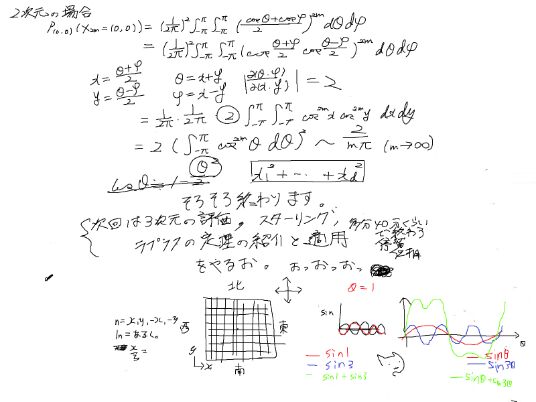 2次元の場合
P(0,0)(X2m=(0,0)) = (1/2π)² ∫-π^π ∫-π^π ((cosθ+cosφ)/2)^2m dθdφ
= (1/2π)² ∫-π^π ∫-π^π (cos (θ+φ)/2 cos (θ-φ)/2)^2m dθdφ
x = (θ+φ)/2 θ = x+y |∂(θ,φ)/∂(x,y)| = 2
y = (θ-φ)/2 φ = x-y
= 1/2π · 1/2π ② ∫-π^π ∫-π^π cos^2m x cos^2m y dxdy
= 2 ( ∫-π^π cos^2m θ dθ )² ~ 2/mπ (m→∞)
θ² x₁²+…+x_d²
そろそろ終わります。
次回は3次元の評価。スターリング,
ラプラスの定理の紹介と適用
をやるお。おっおっお、
北
西 東
南
y x
n=x,y,-x,-y
θ=1
sin
sin1
sin3
sin1+sin3
θ
sinθ
sin3θ
sinθ+sin3θ